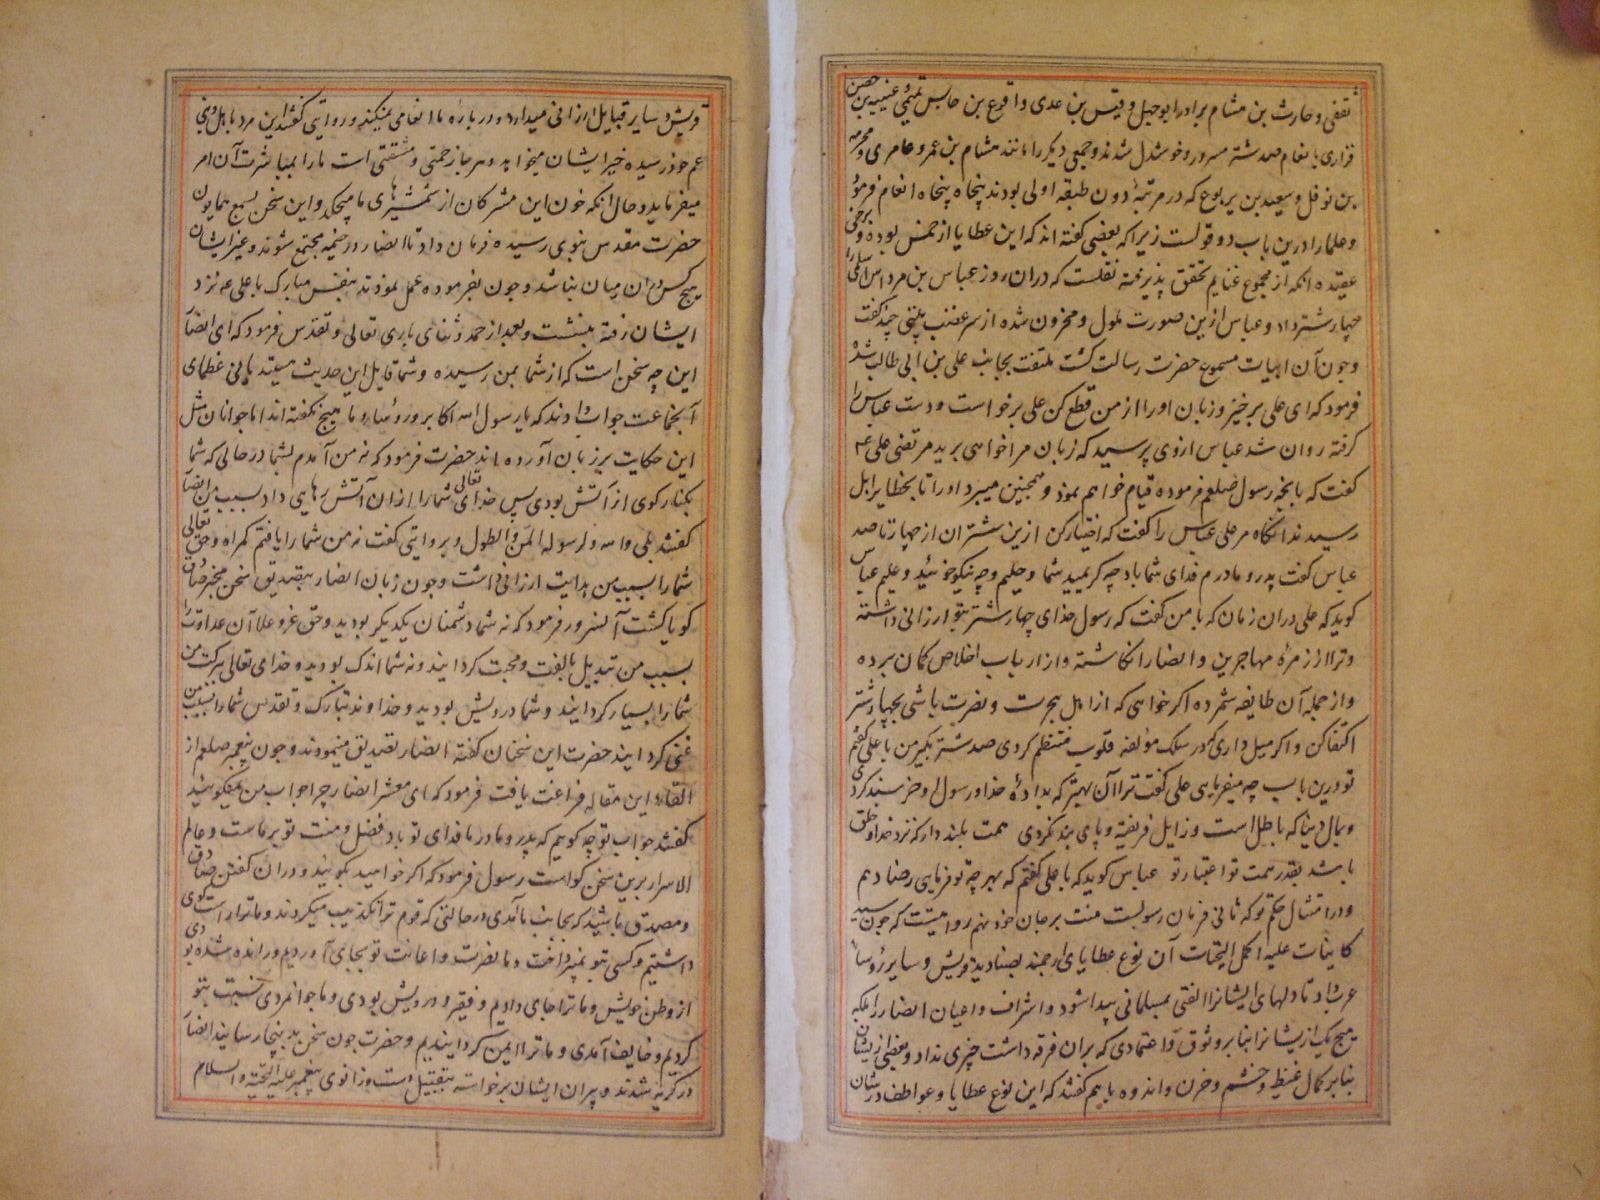 ثقفی و حارث بن هشام برادر ابوجهل و قیس بن عدی و اقرع بن حابس تمیمی و عیینه بن حصین
فزاری بانعام صد شتر مسرور و خوشدل شدند و جمعی دیگر را مانند هشام بن عمرو عامری و مخرمه
بن نوفل و سعید بن یربوع که در مرتبه دون طبقه اولی بودند پنجاه پنجاه انعام فرمود
و علما را درین باب دو قولست زیرا که بعضی گفته اند که این عطایا از خمس بوده و برخی
عقیده آنکه از مجموع غنایم تحقق پذیرفته نقلست که در ان روز عباس بن مرداس اسلمی را
چهار شتر داد و عباس ازین صورت ملول و محزون شده از سر غضب بیتی چند گفت
و چون آن ابیات مسموع حضرت رسالت گشت ملتفت بجانب علی بن ابی طالب شد
فرمود که ای علی برخیز و زبان او را از من قطع کن علی برخواست و دست عباس را
گرفته روان شد عباس ازوی پرسید که زبان مرا خواهی برید مرتضی علی ع
گفت که بانچه رسول صلعم فرموده قیام خواهم نمود و همچنین میبرد او را تا بحظایر ابل
رسیدند انگاه مر علی عباس را گفت که اختیار کن ازین شتران از چهار تا صد
عباس گفت پدر و مادرم فدای شما باد چه کریمید شما و حلیم و چه نیکو خوئید و علیم عباس
گوید که علی در ان زمان که با من گفت که رسول خدای چهار شتر بتو ارزانی داشته
و ترا از زمره مهاجرین و انصار انگاشته و از ارباب اخلاص گمان برده
و از جمله آن طایفه شمرده اگر خواهی که از اهل هجرت و نصرت باشی بچهار شتر
اکتفا کن و اگر میل داری که در سلک مؤلفه قلوب منتظم گردی صد شتر بگیر من با علی گفتم
تو درین باب چه میفرمایی علی گفت ترا آن بهتر که بداده خدا و رسول او خرسند گردی
و بمال دنیا که باطل است و زایل فریفته و پای بند نگردی همت بلند دار که نزد خدا و خلق
باشد بقدر همت تو اعتبار تو عباس گوید که با علی گفتم که بهر چه تو فرمایی رضا دهم
و در امتثال حکم تو که ثانی فرمان رسولست منت بر جان خود نهم روایتست که چون سید
کاینات علیه اکمل التحیات آن نوع عطایای ارجمند بصنادید قریش و سایر رؤسا
عرب داد تا دلهای ایشانرا الفتی بمسلمانی پیدا شود و اشراف و اعیان انصار را بلکه
هیچ یک از یشانرا بنا بر وثوق و اعتمادی که بران فرقه داشت چیزی نداد و بعضی از یشان
بنا بر کمال غیظ و خشم و حزن و اندوه با هم گفتند که این نوع عطایا و عواطف در شان
قریش و سایر قبایل ارزانی میدارد و در باره ما انعامی نمیکند و روایتی گفتند این مرد باهل و بنی
عم خود رسیده خیر ایشان میخواهد و هر جا زحمتی و مشقتی است ما را بمباشرت آن امر
میفرماید و حال آنکه خون این مشرکان از شمشیرهای ما میچکد و این سخن بسمع همایون
حضرت مقدس نبوی رسیده فرمان داد تا انصار در خیمه مجتمع شوند و غیر ایشان
هیچ کس در ان میان نباشد و چون بفرموده عمل نمودند بنفس مبارک با علی ع نزد
ایشان رفته بنشست و بعد از حمد و ثنای باری تعالی و تقدس فرمود که ای انصار
این چه سخن است که از شما بمن رسیده و شما قایل این حدیث هستید یا نی عظمای
آنجماعت جواب دادند که یا رسول الله اکابر و رؤساء ما هیچ نگفته اند اما جوانان مثل
این حکایت بر زبان آورده اند حضرت فرمود که نه من آمدم بشما در حالی که شما
بکنار گوی از آتش بودی پس خدای تعالی شما را از ان آتش رهایی داد بسبب من انصار
گفتند بلی والله و لرسوله المن و الطول و بروایتی گفت نه من شما را یافتم گمراه و حق تعالی
شما را بسبب من هدایت ارزانی داشت و چون زبان انصار بتصدیق سخن مخبر صادق
گویا گشت آنسرور فرمود که نه شما دشمنان یکدیگر بودید و حق عز و علا آن عداوت را
بسبب من تبدیل بالفت و محبت گردانید و نه شما اندک بودید و خدای تعالی ببرکت من
شما را بسیار گردانید و شما درویش بودید و خداوند تبارک و تقدس شما را بسبب من
غنی گردانید حضرت این سخنان گفته انصار تصدیق مینمودند و چون پیغمبر صلعم از
القاء این مقاله فراغت یافت فرمود که ای معشر انصار چرا جواب من نمیگوئید
گفتند جواب تو چه گوییم که پدر و مادر ما فدای تو باد فضل و منت تو بر ماست و عالم
الاسرار برین سخن گواست رسول فرمود که اگر خواهید بگویید و در ان گفتن صادق
و مصدق باشید که بجانب ما آمدی در حالتی که قوم ترا تکذیب میکردند و ما ترا راست گوی
داشتیم و کسی بتو نمیپرداخت و ما نصرت و اعانت تو بجای آوردیم و رانده شده بودی
از وطن خویش و ما ترا جای دادیم و فقیر و درویش بودی و ما جوانمردی نسبت بتو
کردیم و خایف آمدی و ما ترا ایمن گردانیدیم و حضرت چون سخن بدینجا رسانید انصار
در گریه شدند و پیران ایشان برخواسته بتقبیل دست و زانوی پیغمبر علیه التحیة و السلام